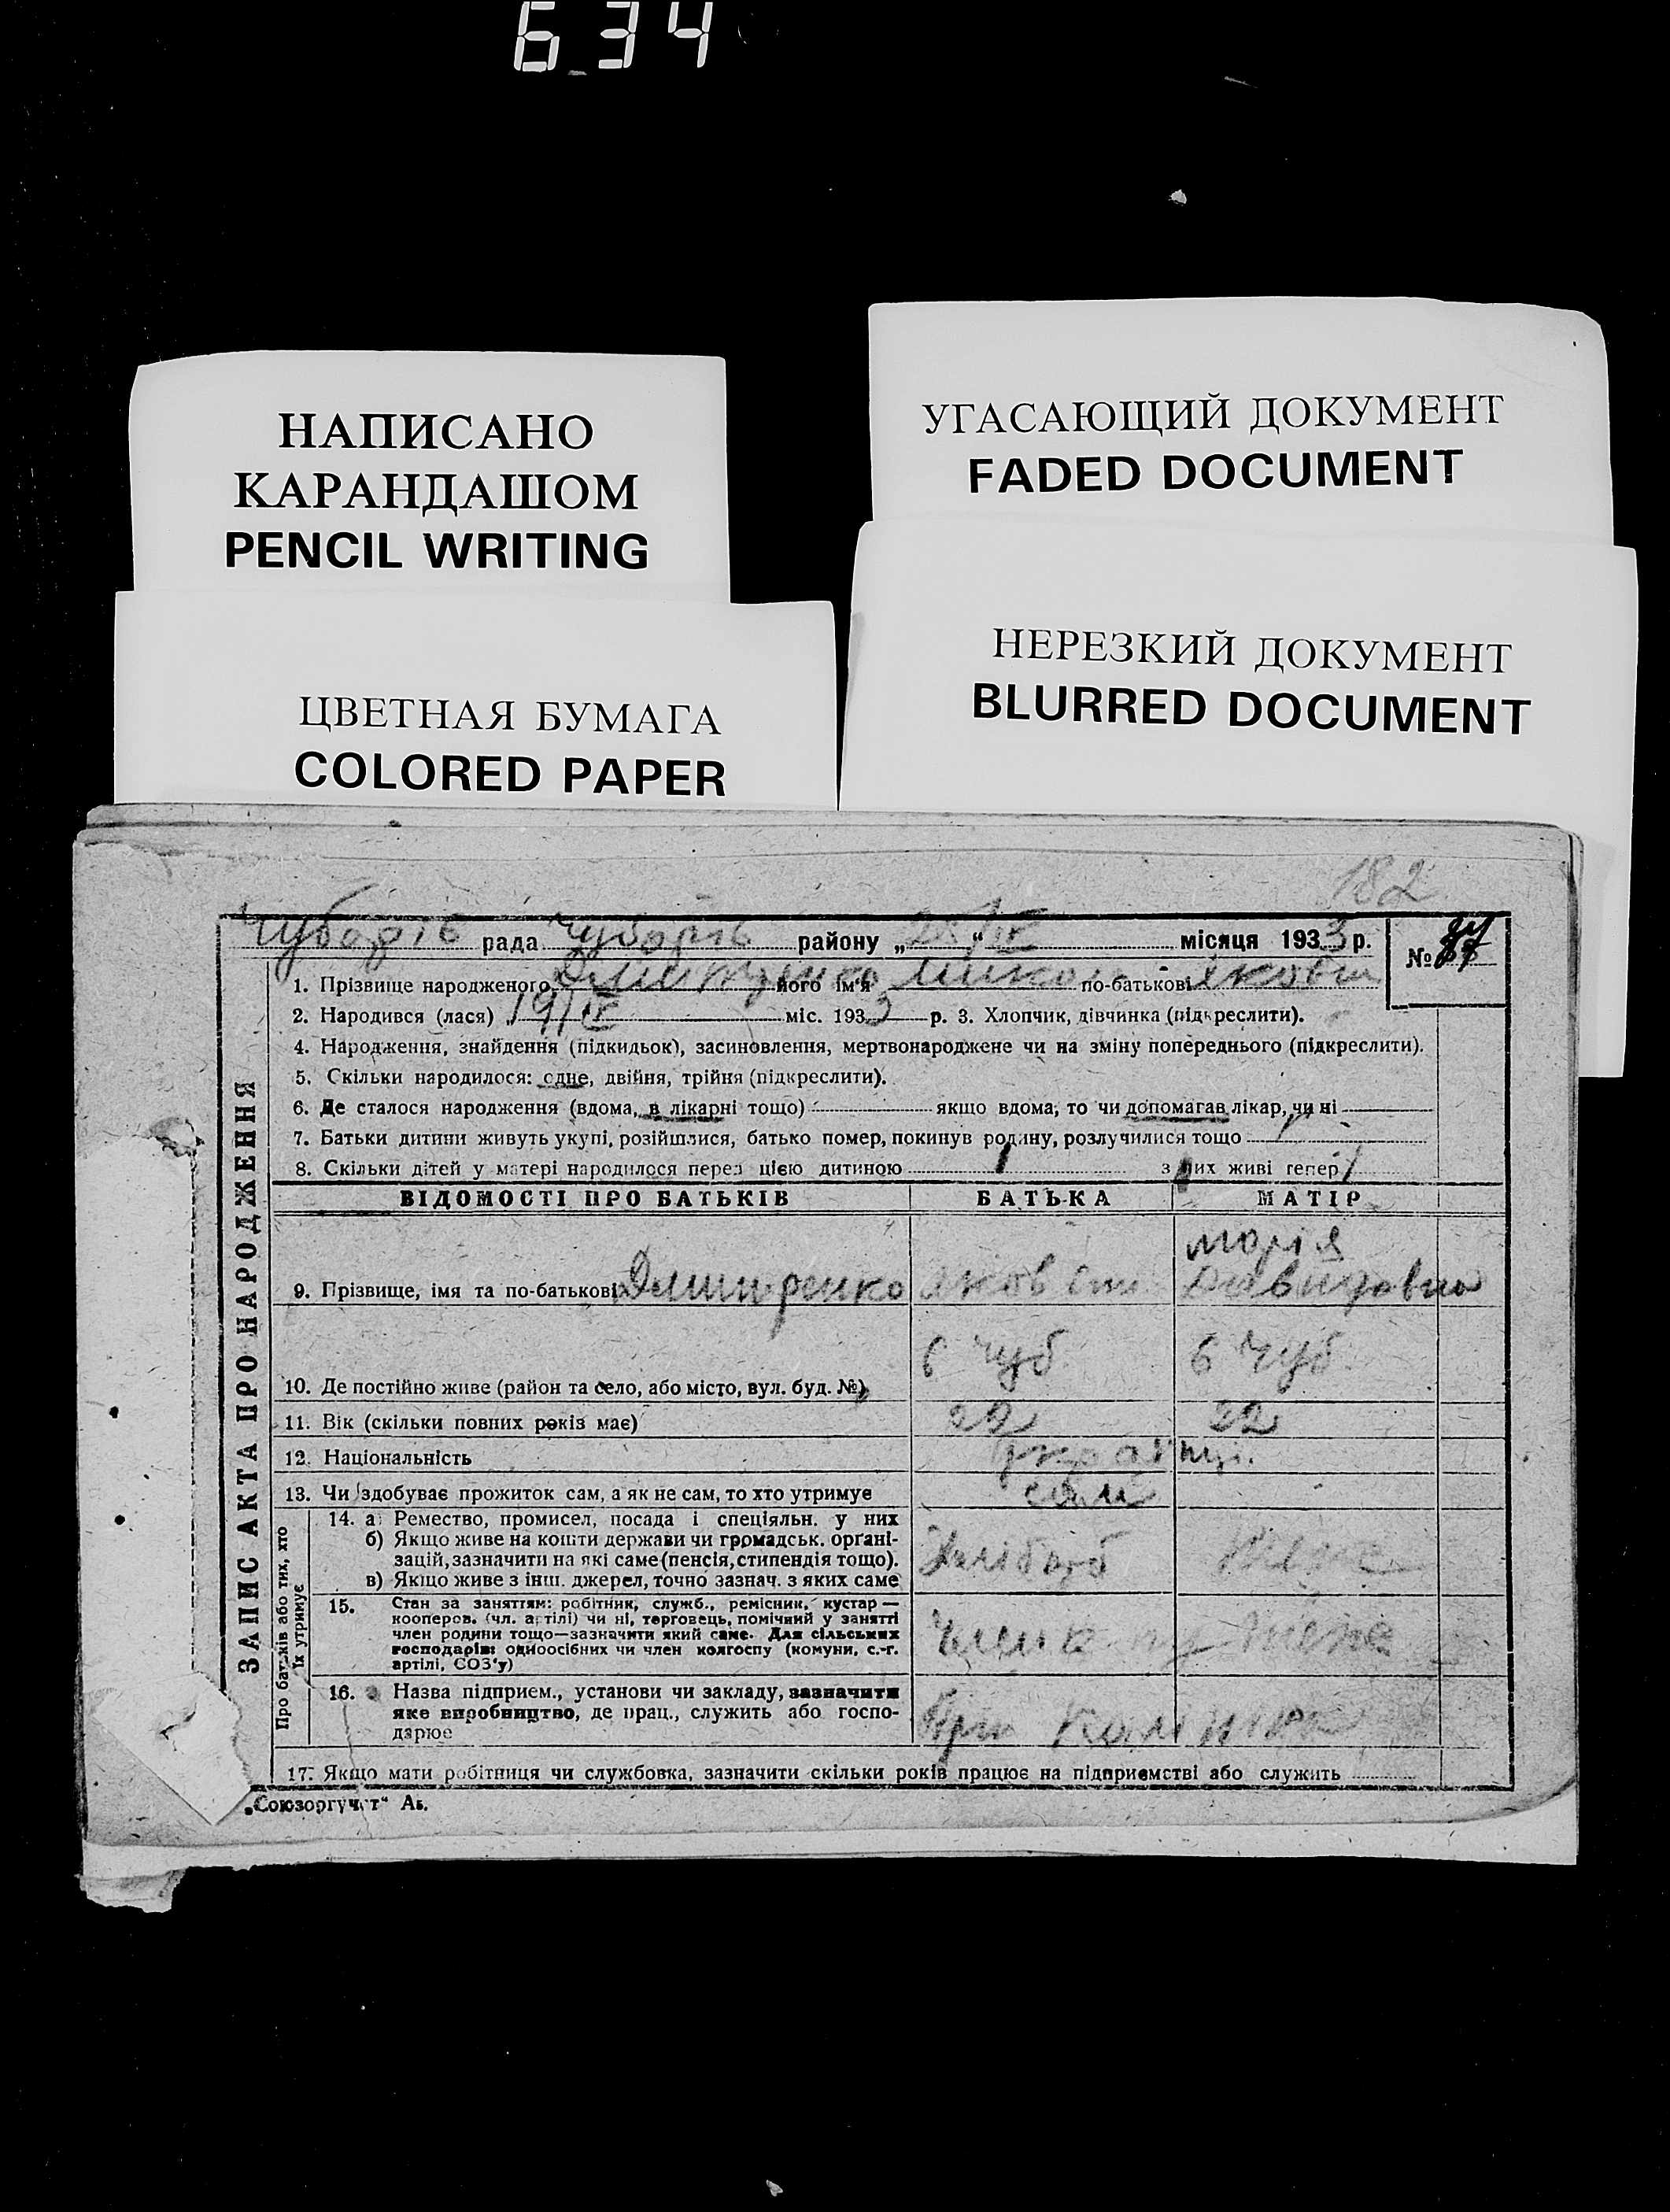 634
НАПИСАНО
КАРАНДАШОМ
PENCIL WRITING
УГАСАЮЩИЙ ДОКУМЕНТ
FADED DOCUMENT
ЦВЕТНАЯ БУМАГА
COLORED PAPER
НЕРЕЗКИЙ ДОКУМЕНТ
BLURRED DOCUMENT
182
Чубарів рада Чубарів району „ “ місяця 1933 р.
№
1. Прізвище народженого його ім'я по-батькові
2. Народився (лася) 19/IV міс. 1933 р. 3. Хлопчик, дівчинка (підкреслити).
4. Народження, знайдення (підкидьок), засиновлення, мертвонароджене чи на зміну попереднього (підкреслити).
5. Скільки народилося: одне, двійня, трійня (підкреслити).
6. Де сталося народження (вдома, в лікарні тощо) якщо вдома, то чи допомагав лікар, чи ні
7. Батьки дитини живуть укупі, розійшлися, батько помер, покинув родину, розлучилися тощо
8. Скільки дітей у матері народилося перед цією дитиною 1 з них живі тепер 1
ЗАПИС АКТА ПРО НАРОДЖЕННЯ
ВІДОМОСТІ ПРО БАТЬКІВ БАТЬКА МАТІР
марія
9. Прізвище, імя та по-батькові Давидовна
6 Чуб 6 Чуб
10. Де постійно живе (район та село, або місто, вул. буд. №)
11. Вік (скільки повних років має) 22 22
12. Національність
13. Чи здобуває прожиток сам, а як не сам, то хто утримує сам
Про батьків або тих, хто їх утримує
14. а) Ремество, промисел, посада і спеціяльн. у них
б) Якщо живе на кошти держави чи громадськ. органі-
зацій, зазначити на які саме (пенсія, стипендія тощо).
в) Якщо живе з інш. джерел, точно зазнач. з яких саме
15. Стан за заняттям: робітник, служб., ремісник, кустар—
кооперов. (чл. артілі) чи ні, торговець, помічний у занятті
член родини тощо—зазначити який саме. Для сільських
господарів: одноосібних чи член колгоспу (комуни, с.-г.
артілі, СОЗ'у)
16. Назва підприєм., установи чи закладу, зазначити
яке виробництво, де прац., служить або госпо-
дарює
17. Якщо мати робітниця чи службовка, зазначити скільки років працює на підприємстві або служить
„Союзоргучет“